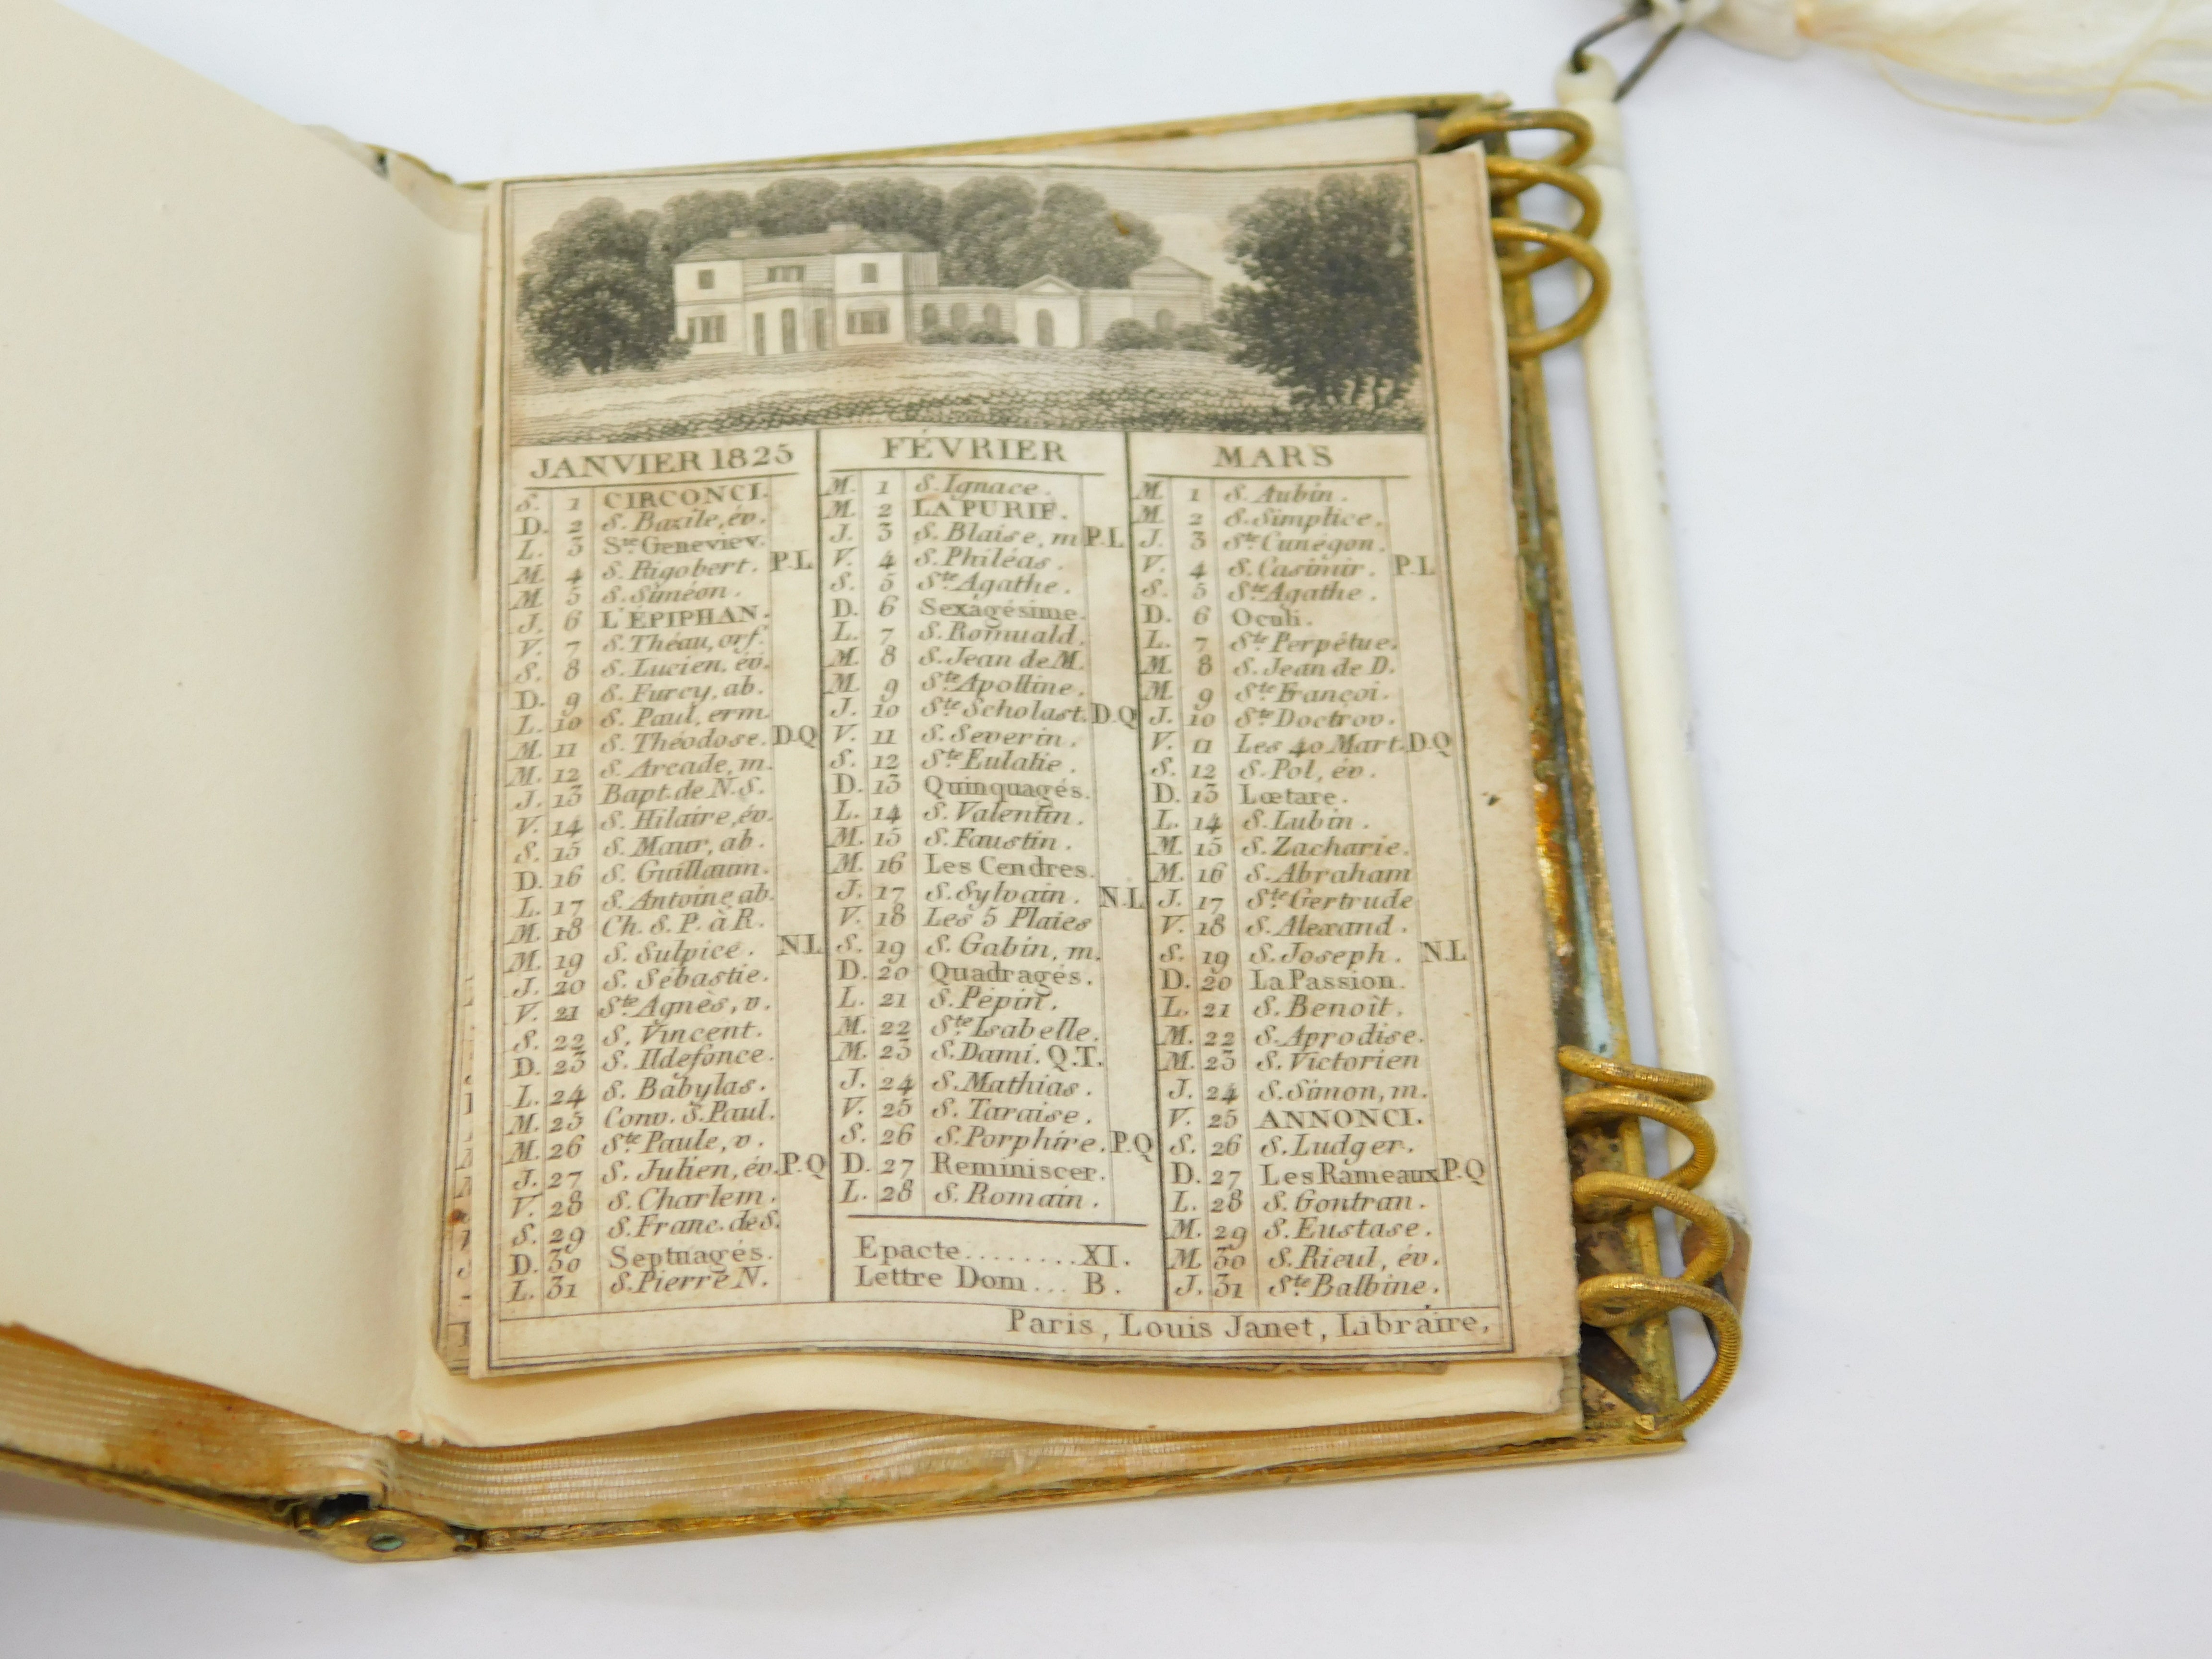 JANVIER 1825
S. 1 CIRCONCI.
D. 2 S. Bazile, év.
L. 3 Ste. Geneviev.
M. 4 S. Rigobert. P.L
M. 5 S. Siméon.
J. 6 L'ÉPIPHAN.
V. 7 S. Théau, orf.
S. 8 S. Lucien, év.
D. 9 S. Furcy, ab.
L. 10 S. Paul, erm.
M. 11 S. Théodose. D.Q
M. 12 S. Arcade, m.
J. 13 Bapt. de N.S.
V. 14 S. Hilaire, év.
S. 15 S. Maur, ab.
D. 16 S. Guillaum.
L. 17 S. Antoine ab.
M. 18 Ch. S. P. à R.
M. 19 S. Sulpice. N.L
J. 20 S. Sébastie.
V. 21 Ste. Agnès, v.
S. 22 S. Vincent.
D. 23 S. Ildefonce.
L. 24 S. Babylas.
M. 25 Conv. S. Paul.
M. 26 Ste. Paule, v.
J. 27 S. Julien, év. P.Q
V. 28 S. Charlem.
S. 29 S. Franc. de S.
D. 30 Septuagés.
L. 31 S. Pierre N.
FÉVRIER
M. 1 S. Ignace.
M. 2 LA PURIF.
J. 3 S. Blaise, m P.L
V. 4 S. Philéas.
S. 5 Ste. Agathe.
D. 6 Sexagésime.
L. 7 S. Romuald.
M. 8 S. Jean de M.
M. 9 Ste. Apolline.
J. 10 Ste. Scholast. D.Q
V. 11 S. Severin.
S. 12 Ste. Eulalie.
D. 13 Quinquagés.
L. 14 S. Valentin.
M. 15 S. Faustin.
M. 16 Les Cendres.
J. 17 S. Sylvain. N.L
V. 18 Les 5 Plaies
S. 19 S. Gabin, m.
D. 20 Quadragés.
L. 21 S. Pépin.
M. 22 Ste. Isabelle.
M. 23 S. Dami. Q.T.
J. 24 S. Mathias.
V. 25 S. Taraise.
S. 26 S. Porphire. P.Q
D. 27 Reminiscer.
L. 28 S. Romain.
Epacte........XI.
Lettre Dom... B.
MARS
M. 1 S. Aubin.
M. 2 S. Simplice.
J. 3 Ste. Cunégon.
V. 4 S. Casimir. P.L
S. 5 Ste. Agathe.
D. 6 Oculi.
L. 7 Ste. Perpétue.
M. 8 S. Jean de D.
M. 9 Ste. Françoi.
J. 10 Ste. Doctrov.
V. 11 Les 40 Mart. D.Q
S. 12 S. Pol, év.
D. 13 Lœtare.
L. 14 S. Lubin.
M. 15 S. Zacharie.
M. 16 S. Abraham
J. 17 Ste. Gertrude
V. 18 S. Alexand.
S. 19 S. Joseph. N.L
D. 20 La Passion.
L. 21 S. Benoît.
M. 22 S. Aprodise.
M. 23 S. Victorien
J. 24 S. Simon, m.
V. 25 ANNONCI.
S. 26 S. Ludger.
D. 27 Les Rameaux P.Q
L. 28 S. Gontran.
M. 29 S. Eustase.
M. 30 S. Rieul, év.
J. 31 Ste. Balbine.
Paris, Louis Janet, Libraire,